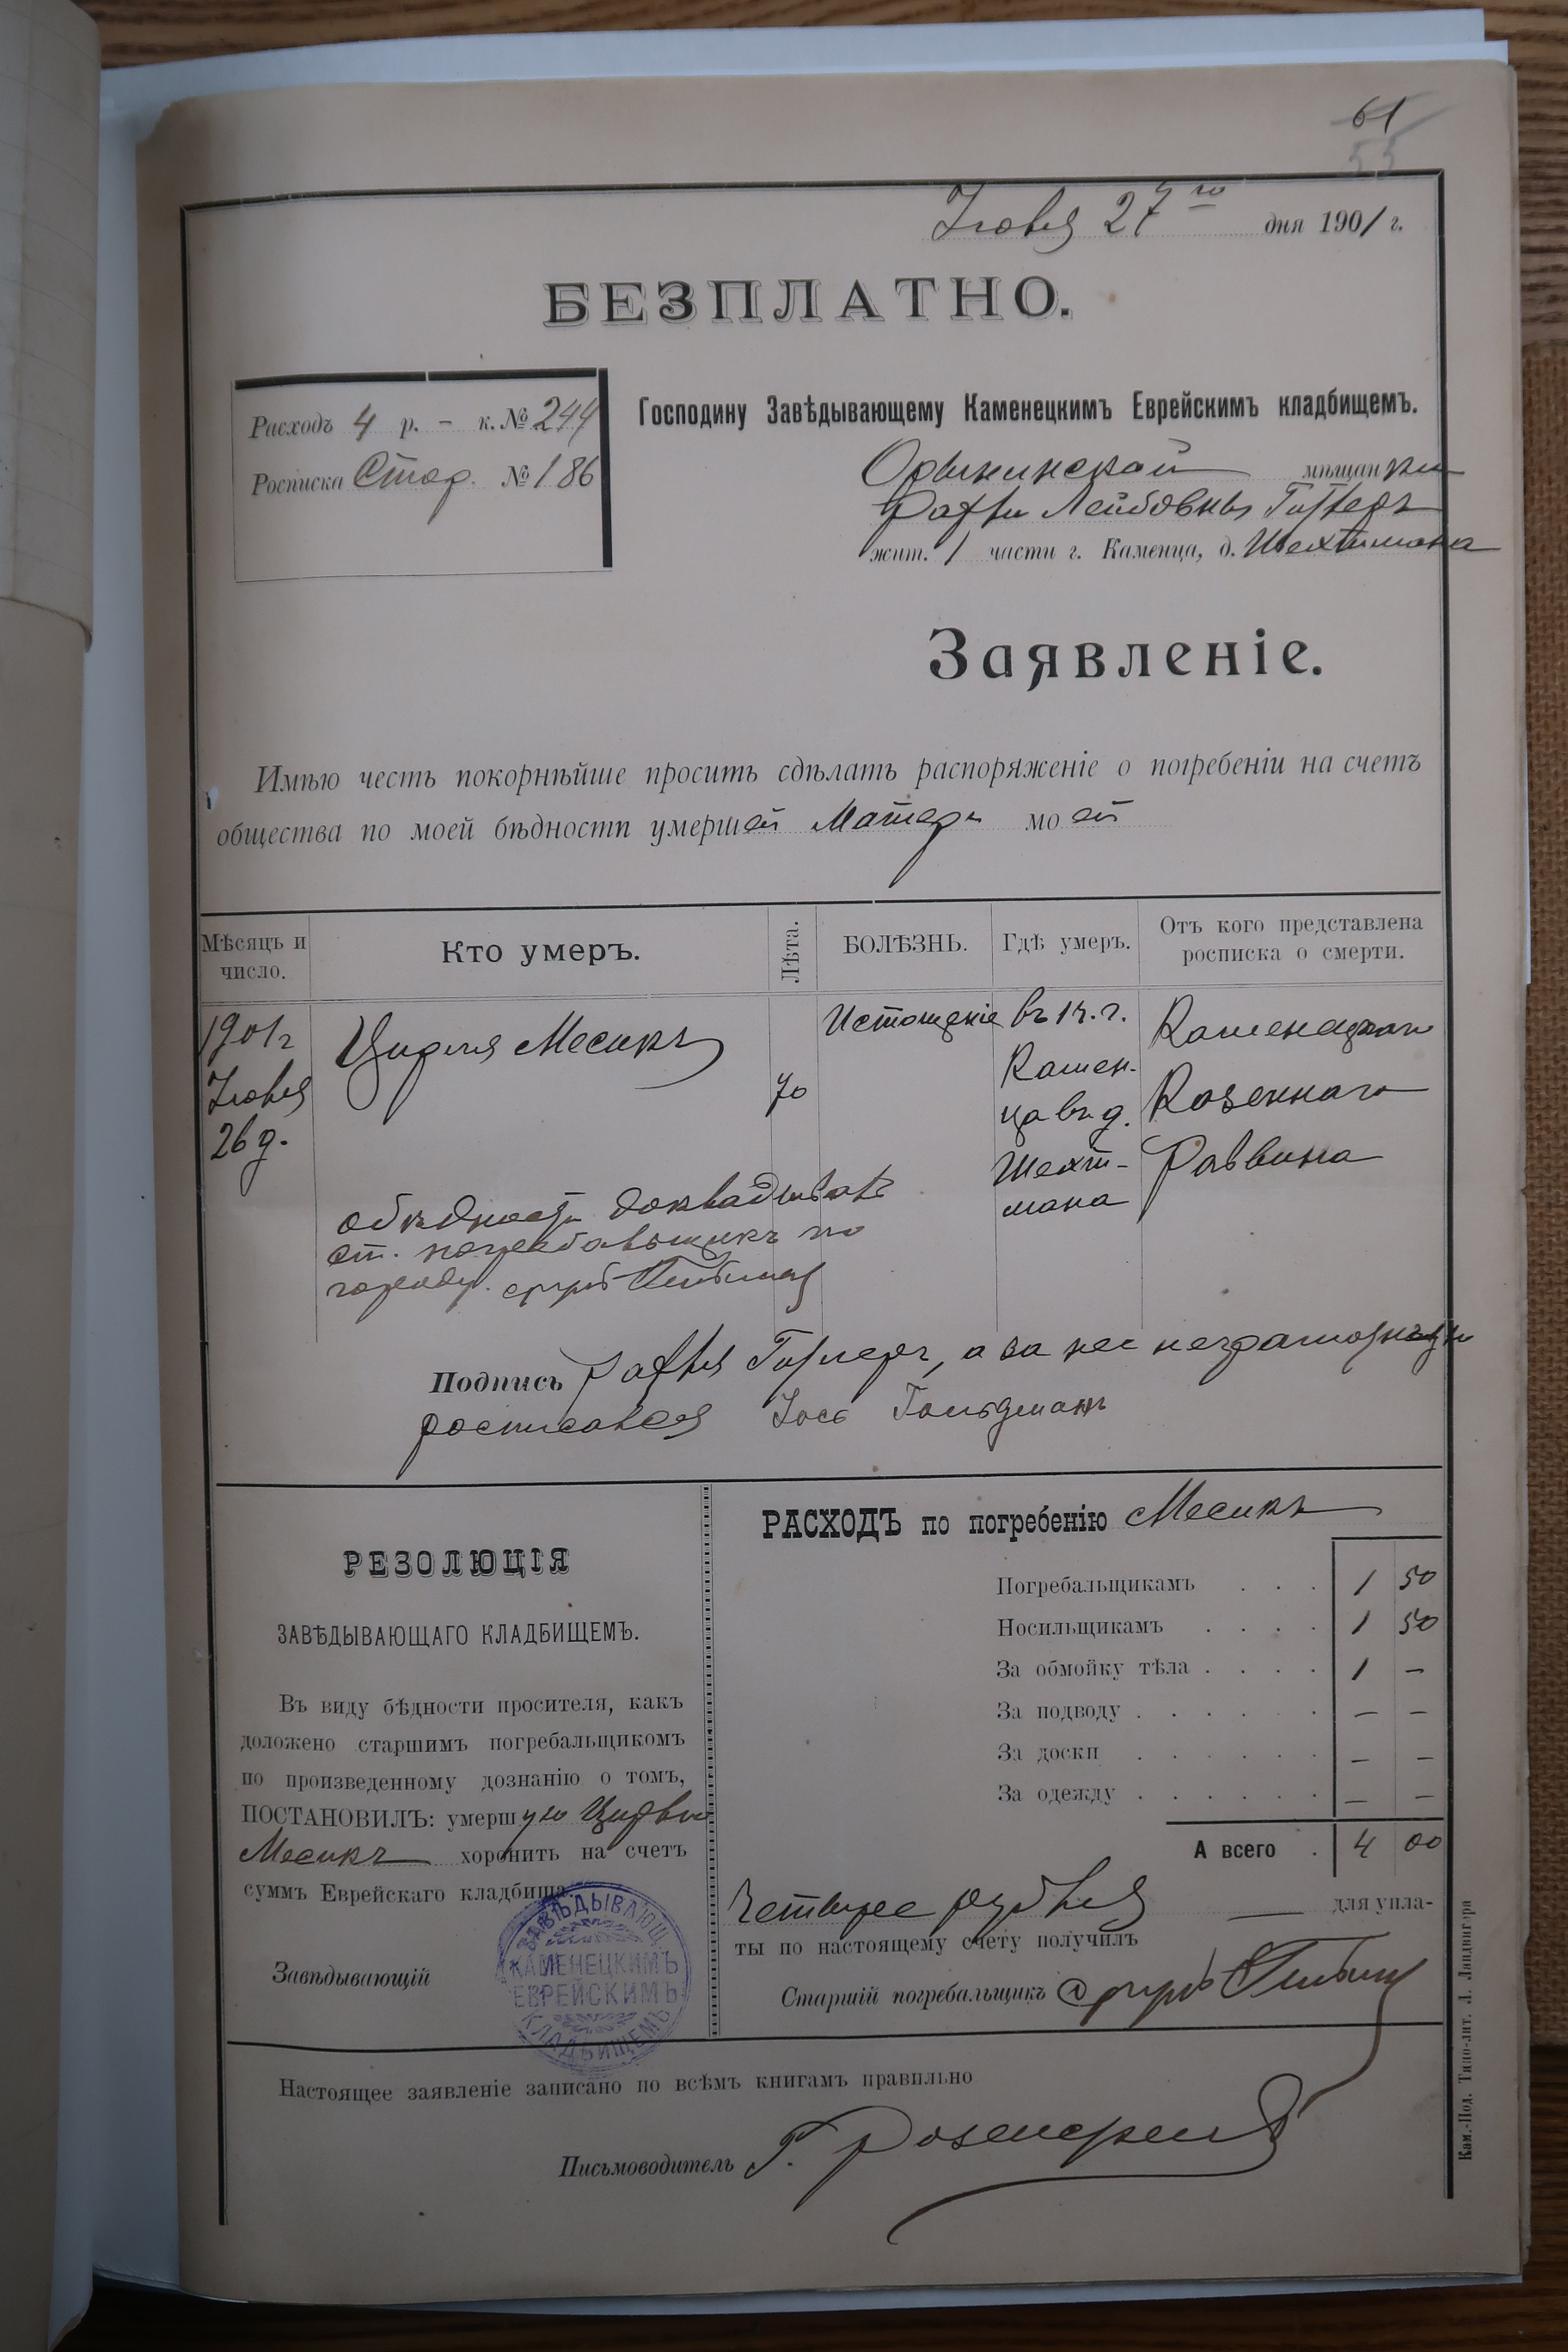 61
55
Іюля 27го дня 1901 г.
БЕЗПЛАТНО.
Расходъ 4 р. – к. № 244
Росписка Стар. № 186
Господину Завѣдывающему Каменецкимъ Еврейскимъ кладбищемъ.
Орынинской мѣщанки
Лейбовны
жит. 1 части г. Каменца, д. Шехтмана
Заявленіе.
Имѣю честь покорнѣйше просить сдѣлать распоряженіе о погребеніи на счетъ
общества по моей бѣдности умершей Матери моей
Мѣсяцъ и число.
Кто умеръ.
Лѣта.
БОЛѢЗНЬ.
Гдѣ умеръ.
Отъ кого представлена росписка о смерти.
1901 г
Іюля
26 д.
Цирля Месикъ
70
Истощеніе
въ 1 ч. г.
Камен-
ца въ д.
Шехт-
мана
Каменецкаго
Казеннаго
Раввина
о бѣдности докладывалъ
ст. погребальщикъ по
городу.
Подпись а за нее неграмотную
росписался Іось Гольдманъ
РЕЗОЛЮЦІЯ
ЗАВѢДЫВАЮЩАГО КЛАДБИЩЕМЪ.
Въ виду бѣдности просителя, какъ
доложено старшимъ погребальщикомъ
по произведенному дознанію о томъ,
ПОСТАНОВИЛЪ: умершую Цирлю
Месикъ хоронить на счетъ
суммъ Еврейскаго кладбища.
Завѣдывающій
ЗАВѢДЫВАЮЩ.
КАМЕНЕЦКИМЪ
ЕВРЕЙСКИМЪ
КЛАДБИЩЕМЪ
РАСХОДЪ по погребенію Месикъ
Погребальщикамъ . . . 1 50
Носильщикамъ . . . . 1 50
За обмойку тѣла . . . . 1 –
За подводу . . . . . . – –
За доски . . . . . . – –
За одежду . . . . . . – –
А всего . 4 00
Четыре рубля для упла-
ты по настоящему счету получилъ
Старшій погребальщикъ
Настоящее заявленіе записано по всѣмъ книгамъ правильно
Письмоводитель Г.
Кам.-Под. Типо-лит. Л. Ландвигера